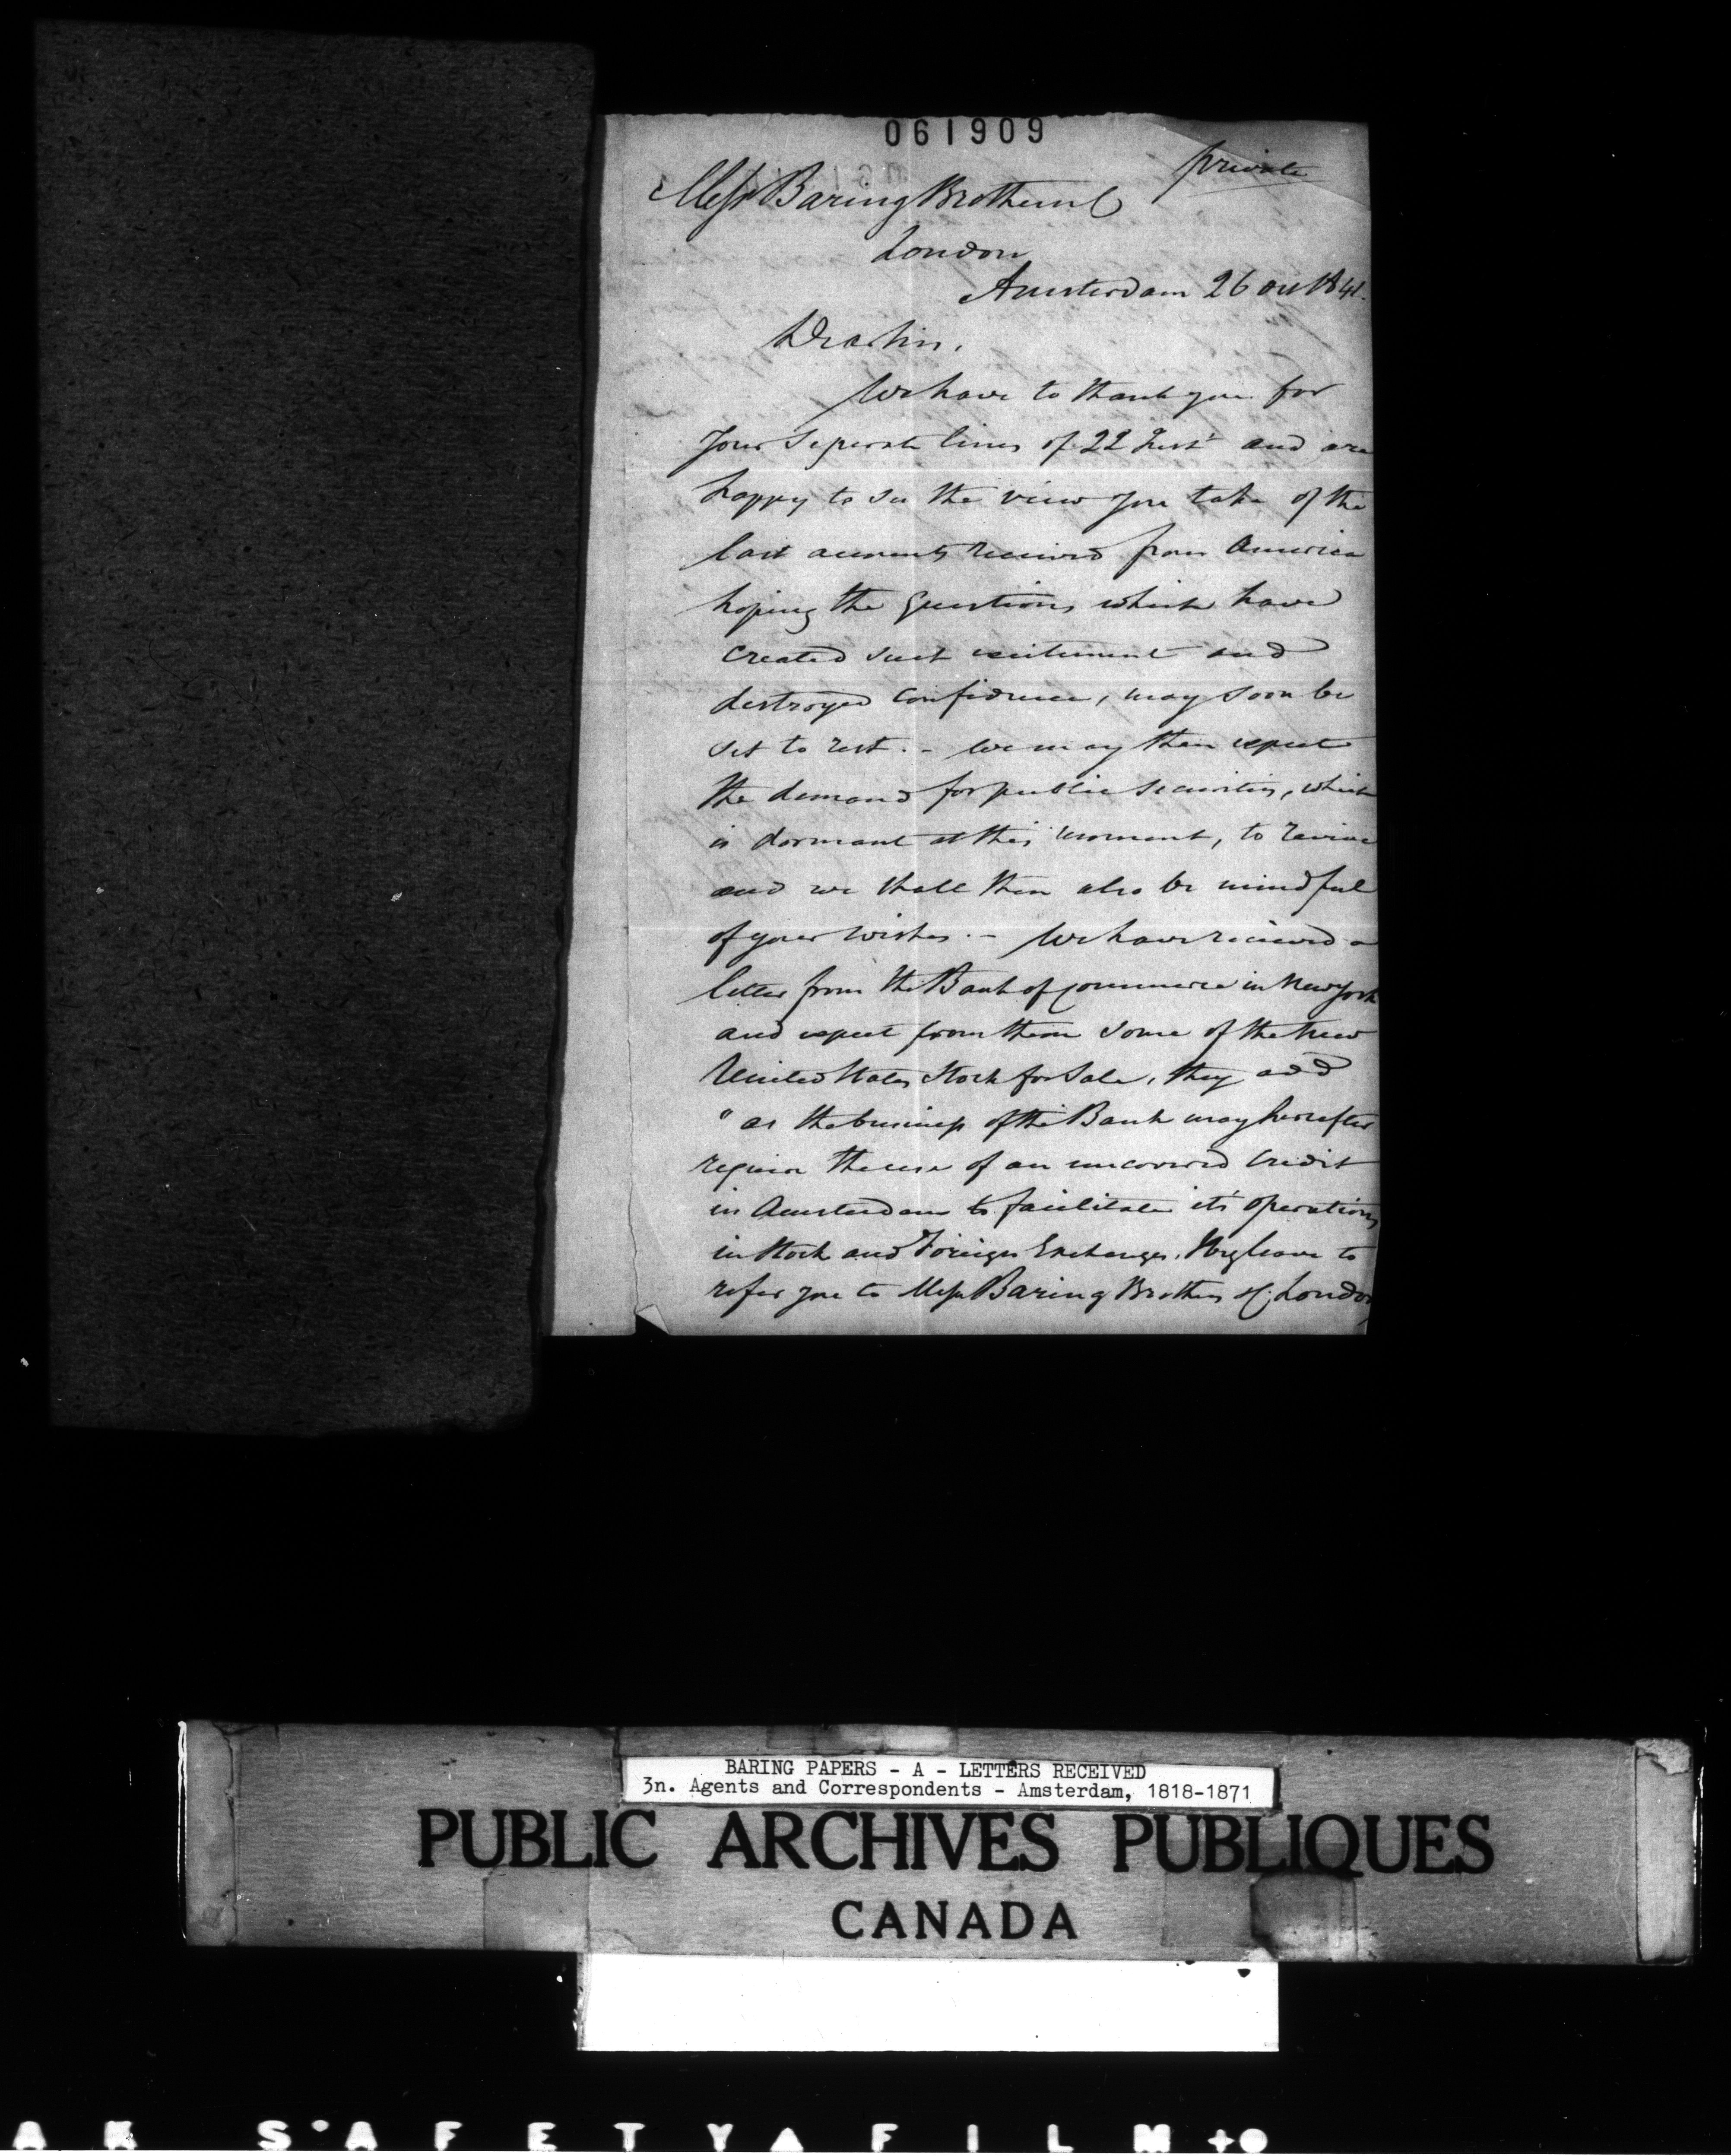 061909
private
Messrs Baring Brothers & C
London
Amsterdam 26 Oct 1841.
Dear Sirs,
We have to thank you for
Your separate lines of 22 Inst and are
happy to see the view you take of the
last accounts received from America
hoping the questions which have
created such excitement and
destroyed confidence, may soon be
set to rest. - We may then expect
the demand for public securities, which
is dormant at this moment, to revive
and we shall then also be mindful
of your wishes. - We have received a
letter from the Bank of Commerce in New York
and expect from them some of the New
United States Stock for Sale, they add
" as the business of the Bank may hereafter
require the use of an uncovered Credit
in Amsterdam to facilitate it's operations
in Stock and Foreign Exchanges, I beg leave to
refer you to Messrs Baring Brothers & C. London
BARING PAPERS - A - LETTERS RECEIVED
3n. Agents and Correspondents - Amsterdam, 1818-1871
PUBLIC ARCHIVES PUBLIQUES
CANADA
AK SAFETY FILM